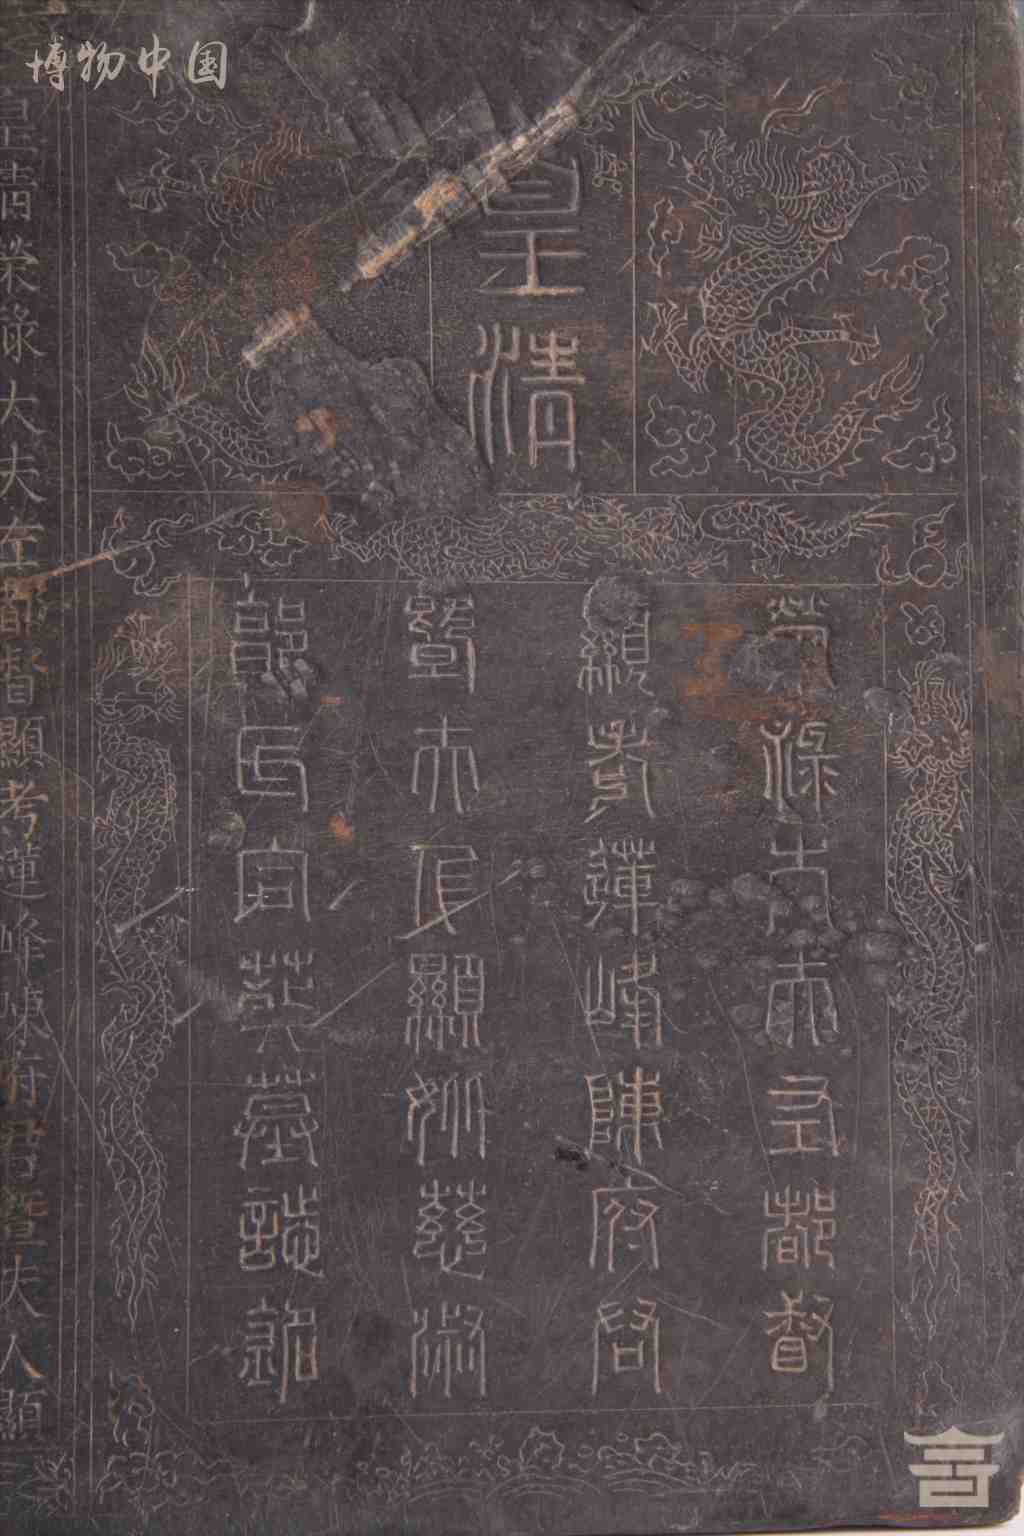 博物中国
皇清
榮祿大夫左都督
顯考蓮峰陳府君
暨夫人顯妣慈淑
葬墓誌銘
皇清榮祿大夫左都督顯考蓮峰陳府君暨夫人顯